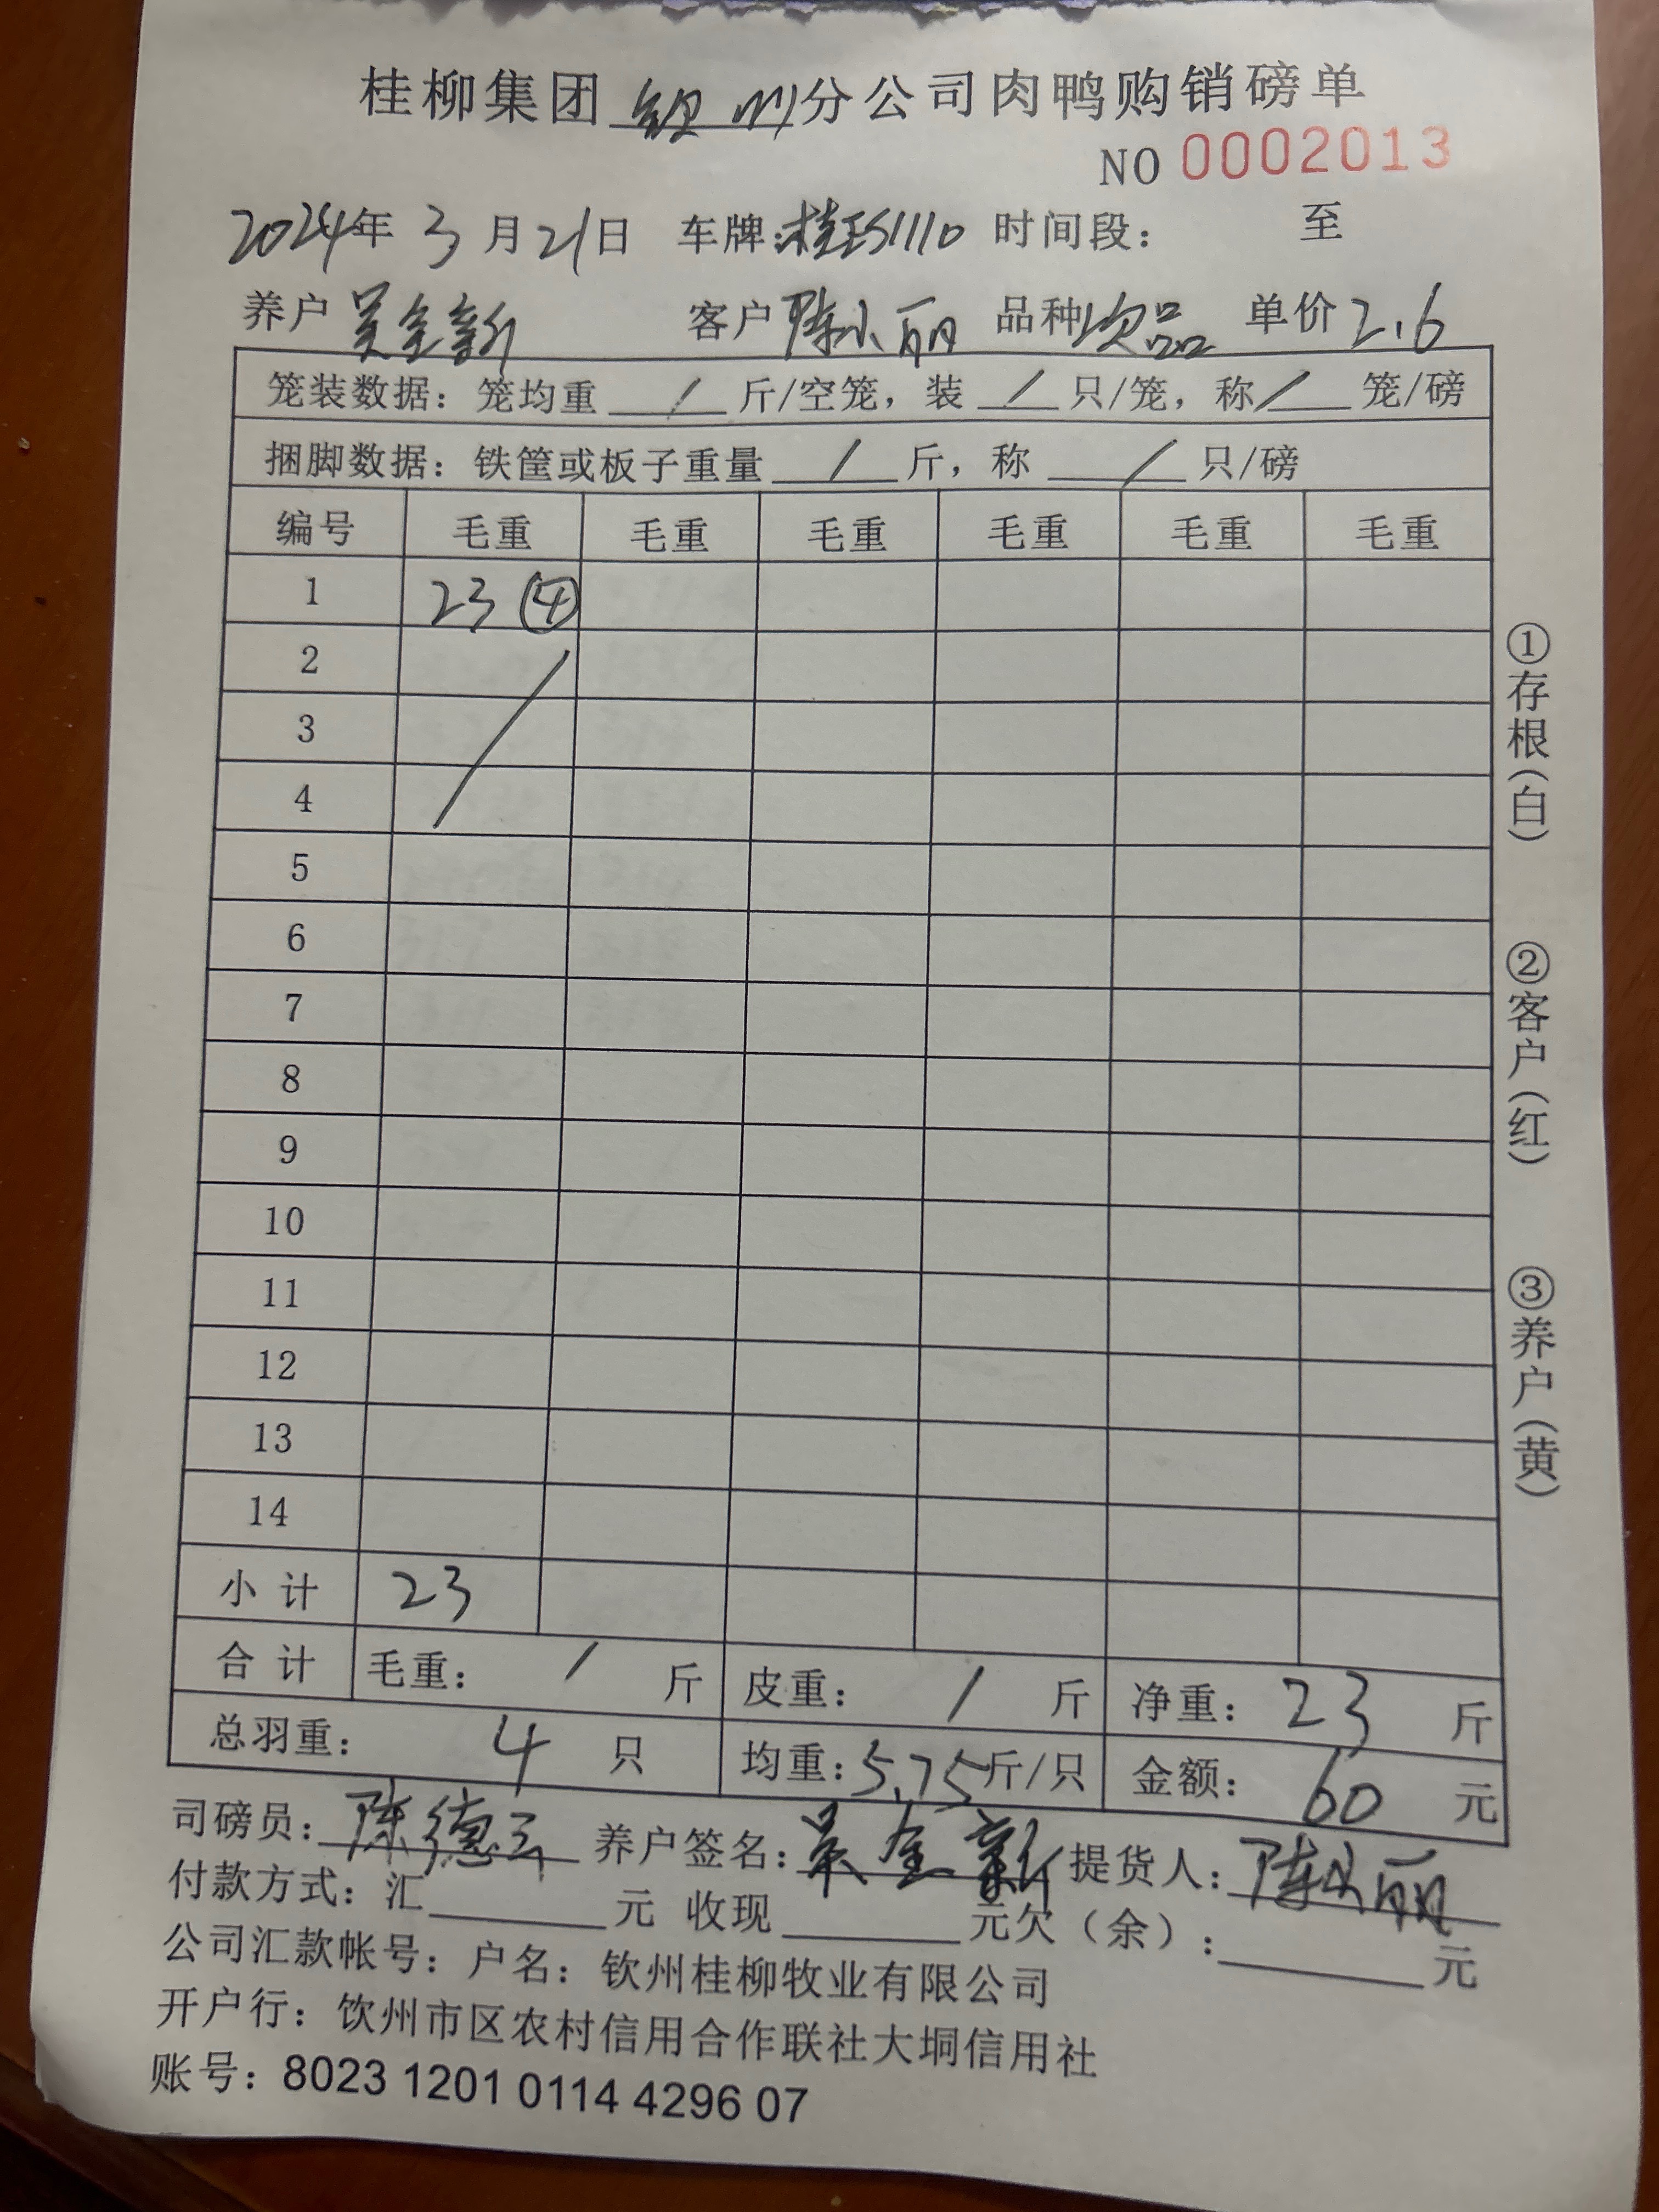 桂柳集团 钦州 分公司肉鸭购销磅单
NO 0002013
2024年 3 月 21日 车牌: 时间段: 至
养户 吴金新 客户 陈小丽 品种 次品 单价 2.6
笼装数据: 笼均重 / 斤/空笼, 装 / 只/笼, 称 / 笼/磅
捆脚数据: 铁筐或板子重量 / 斤, 称 / 只/磅
编号 毛重 毛重 毛重 毛重 毛重 毛重
1 23 ④
2
3
4
5
6
7
8
9
10
11
12
13
14
小 计 23
合 计 毛重: / 斤 皮重: / 斤 净重: 23 斤
总羽重: 4 只 均重: 5.75 斤/只 金额: 60 元
司磅员: 陈德 养户签名: 吴金新 提货人: 陈小丽
付款方式: 汇 元 收现 元 欠（余）: 元
公司汇款帐号: 户名: 钦州桂柳牧业有限公司
开户行: 钦州市区农村信用合作联社大垌信用社
账号: 8023 1201 0114 4296 07
①存根（白）
②客户（红）
③养户（黄）